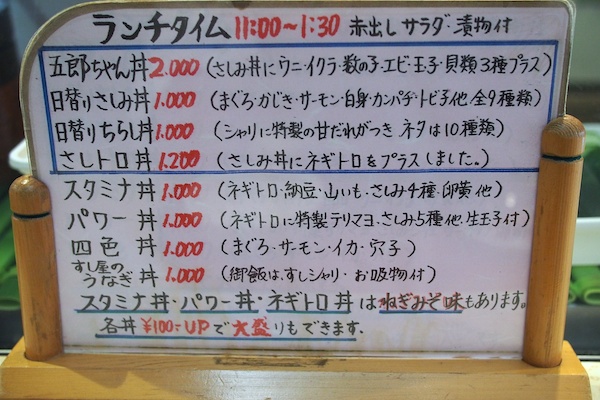 ランチタイム 11:00〜1:30 赤出し サラダ・漬物付
五郎ちゃん丼 2.000 (さしみ丼にウニ・イクラ・数の子・エビ・玉子・貝類3種プラス)
日替りさしみ丼 1.000 (まぐろ・かじき・サーモン・白身・カンパチ・トビ子他 全9種類)
日替りちらし丼 1.000 (シャリに特製の甘だれがつき ネタは10種類)
さしトロ丼 1.200 (さしみ丼にネギトロをプラスしました。)
スタミナ丼 1.000 (ネギトロ・納豆・山いも・さしみ4種・卵黄 他)
パワー丼 1.000 (ネギトロに特製テリマヨ・さしみ5種他・生玉子付)
四色丼 1.000 (まぐろ・サーモン・イカ・穴子)
すし屋のうなぎ丼 1.000 (御飯は、すしシャリ・お吸物付)
スタミナ丼・パワー丼・ネギトロ丼はねぎみそ味もあります。
各丼 ¥100-UPで大盛りもできます.